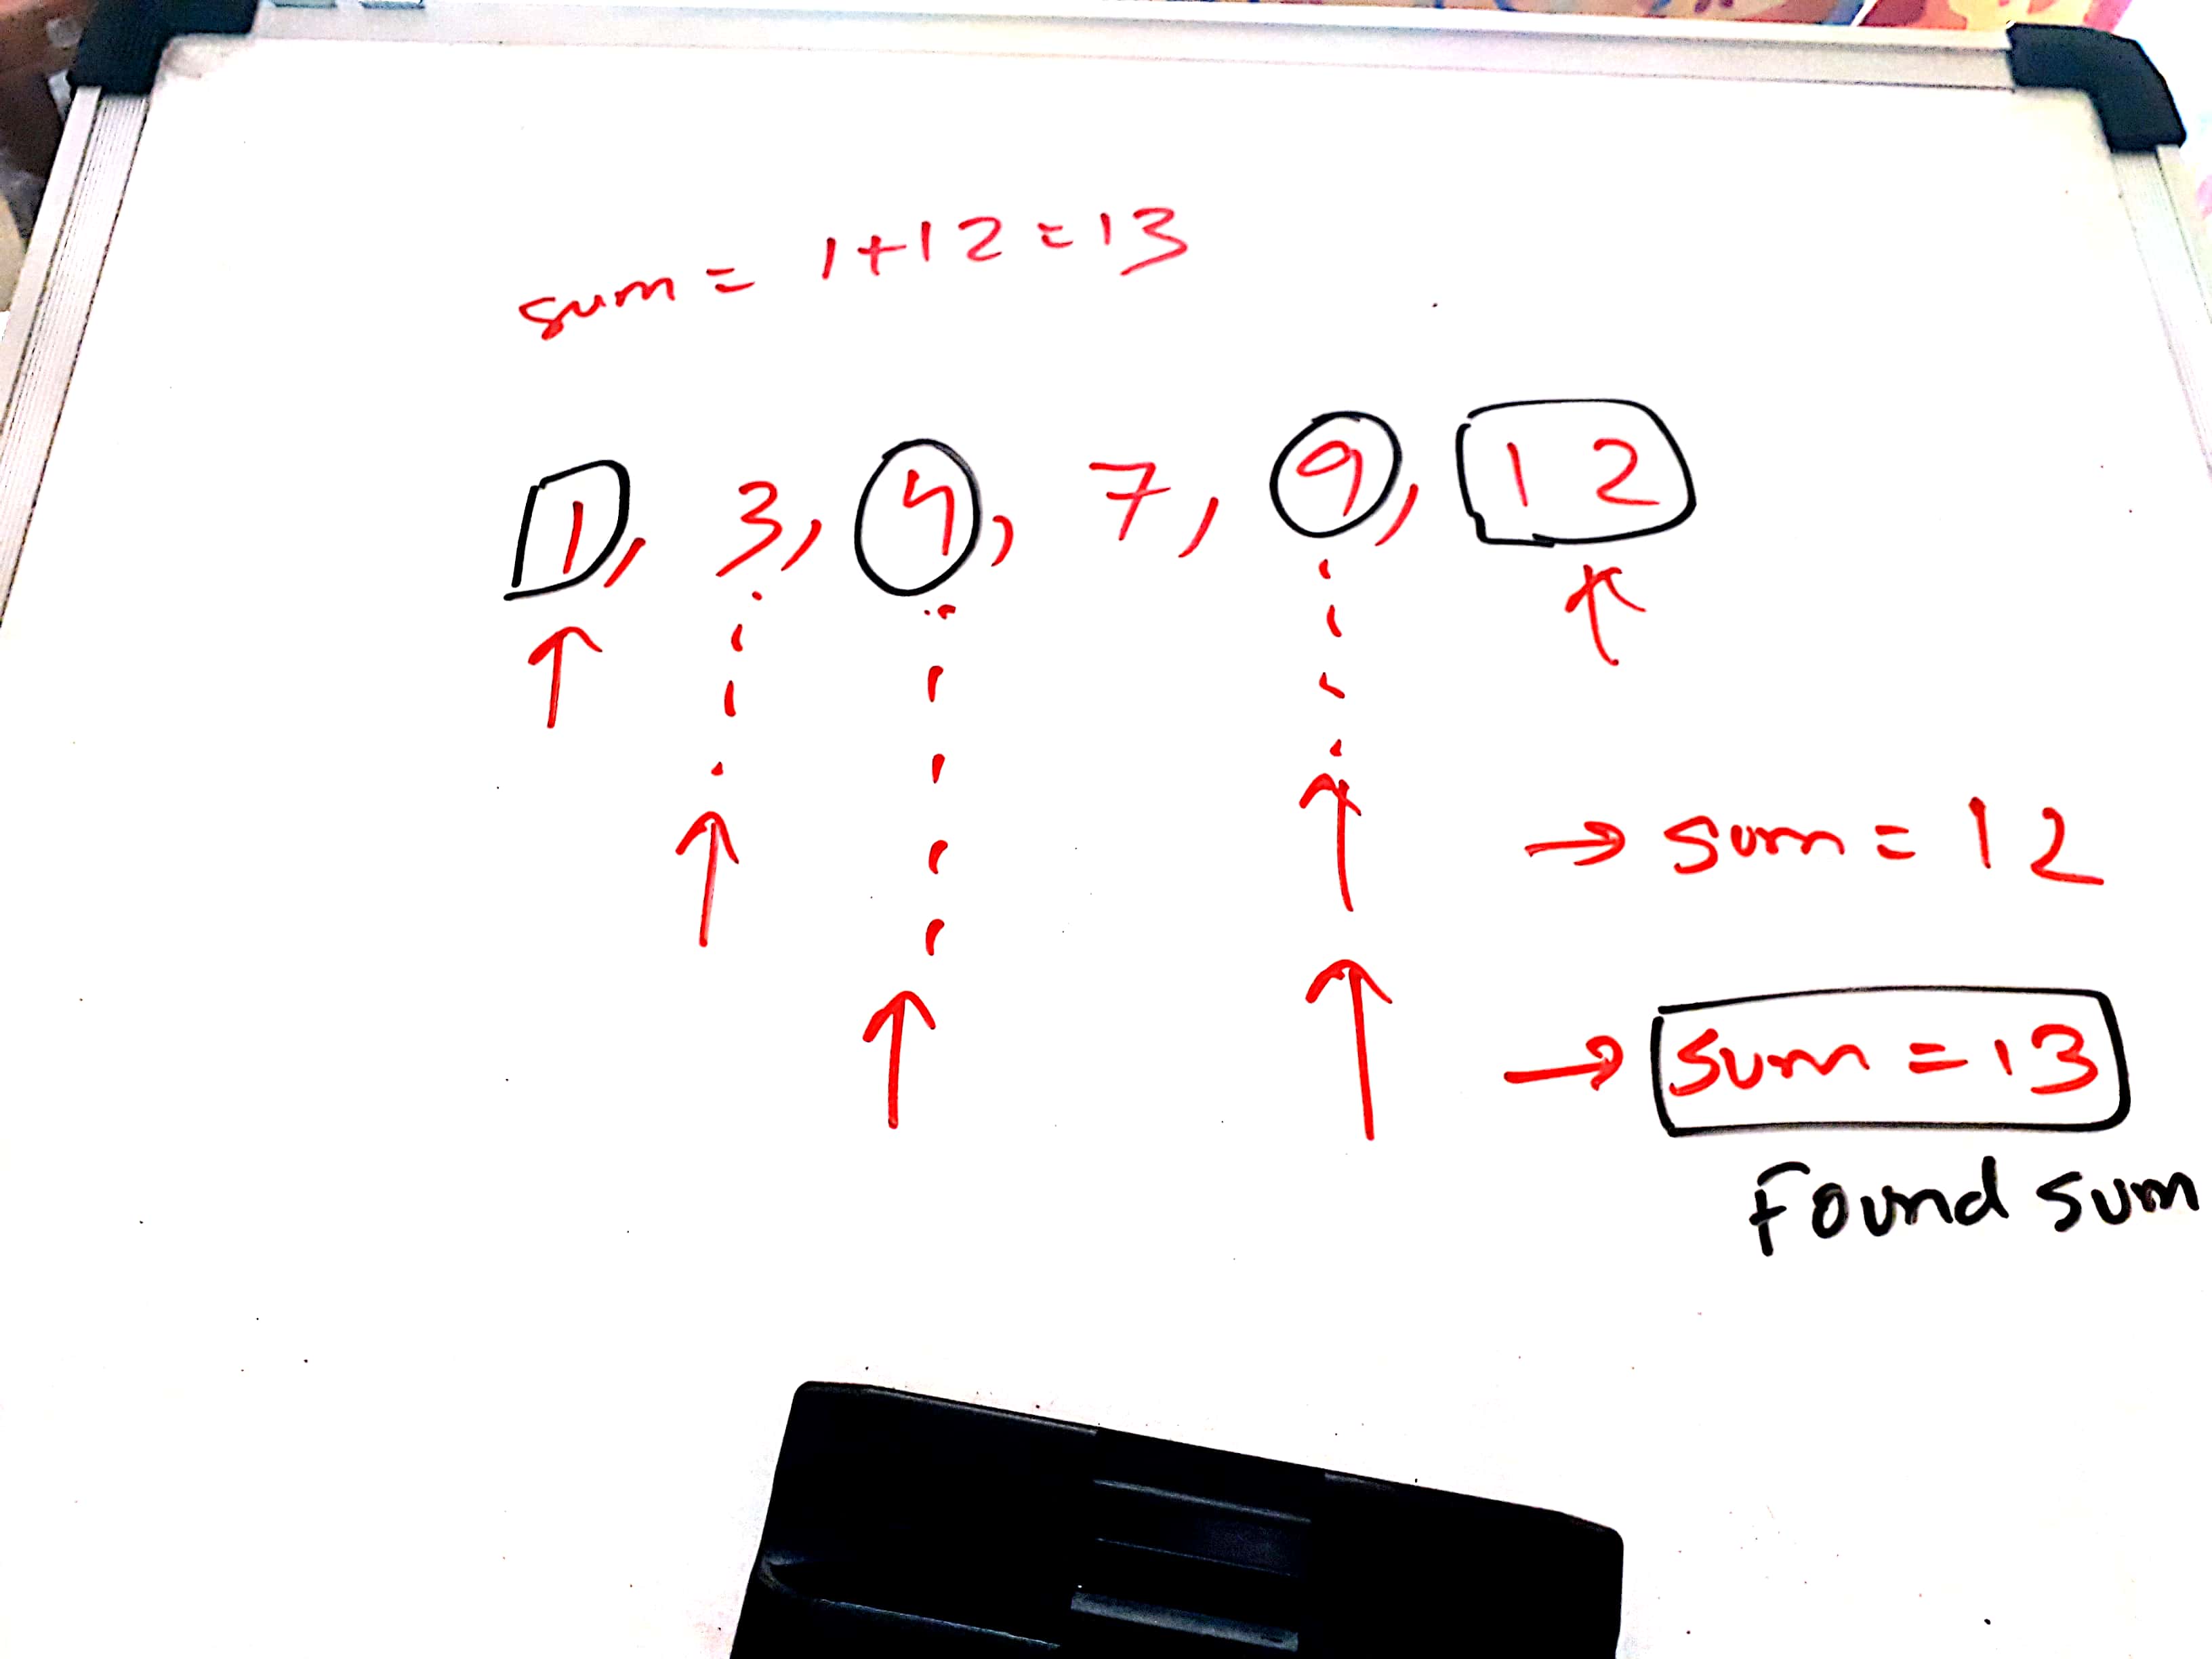 sum = 1+12=13
1, 3, 4, 7, 9, 12
→ sum = 12
→ sum = 13
Found sum